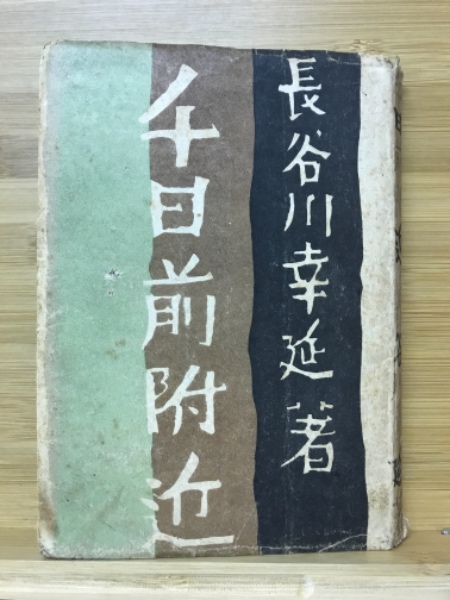 長谷川幸延著
千日前附近